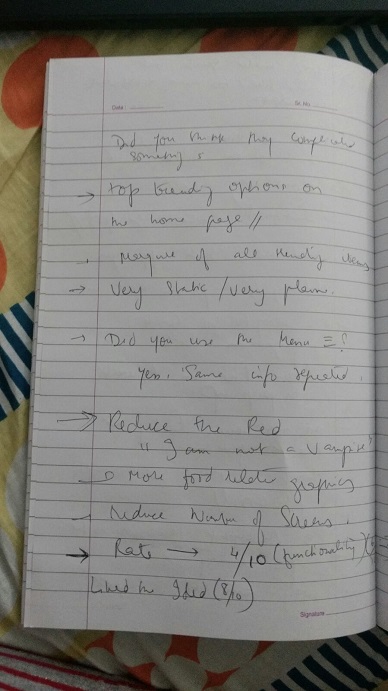 Date
Sr. No.
Did you think they complicated
something ?
→ top trendy options on
the home page //
→ Marque of all trendy items
→ Very static / very plain.
→ Did you use the Menu ≡ ?
Yes. Same info repeated.
→ Reduce the Red
"I am not a Vampire"
→ More food related graphics
→ reduce Number of Screens.
→ Rate → 4/10 (functionality)
Liked the Idea (8/10)
Signature